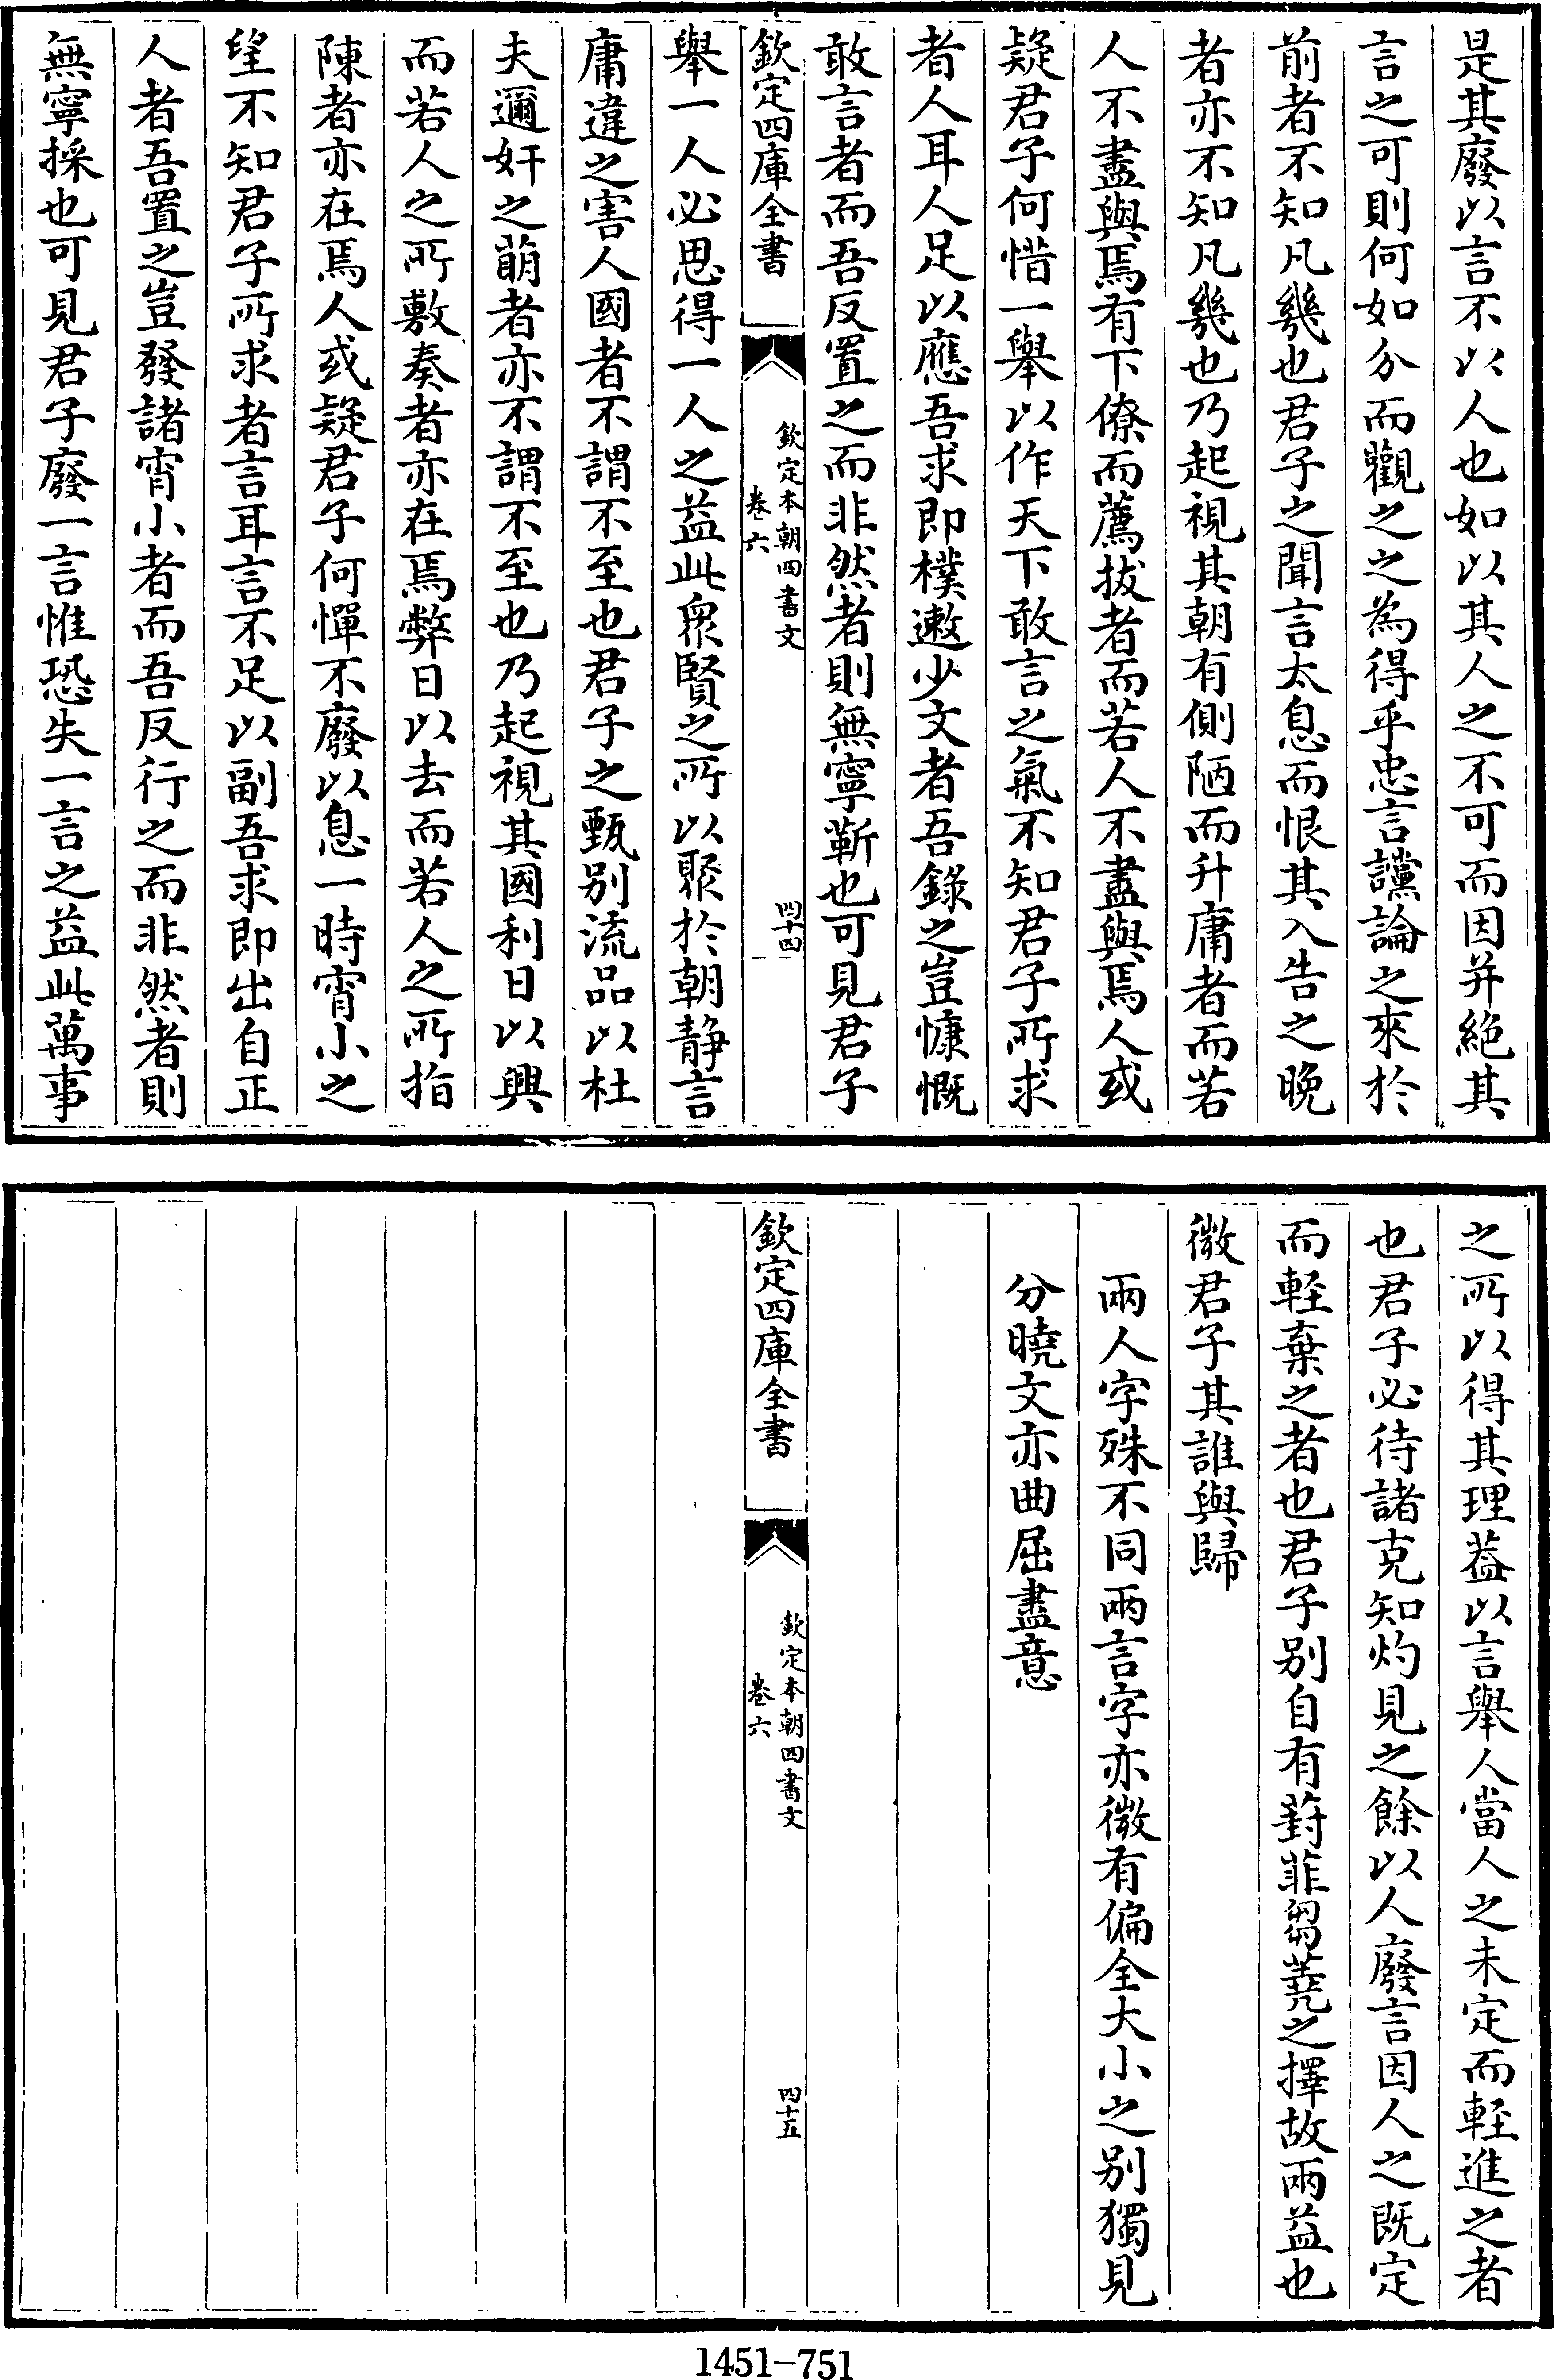 是其廢以言不以人也如以其人之不可而因并絕其
言之可則何如分而觀之之為得乎忠言讜論之來於
前者不知凡幾也君子之聞言太息而恨其入告之晚
者亦不知凡幾也乃起視其朝有側陋而升庸者而若
人不盡與焉有下僚而薦拔者而若人不盡與焉人或
疑君子何惜一舉以作天下敢言之氣不知君子所求
者人耳人足以應吾求即樸遬少文者吾錄之豈慷慨
敢言者而吾反置之而非然者則無寧蘄也可見君子
欽定四庫全書
欽定本朝四書文
卷六
四十四
舉一人必思得一人之益此衆賢之所以聚於朝静言
庸違之害人國者不謂不至也君子之甄别流品以杜
夫邇奸之萠者亦不謂不至也乃起視其國利日以興
而若人之所敷奏者亦在焉弊日以去而若人之所指
陳者亦在焉人或疑君子何憚不廢以息一時宵小之
望不知君子所求者言耳言不足以副吾求即出自正
人者吾置之豈發諸宵小者而吾反行之而非然者則
無寧採也可見君子廢一言惟恐失一言之益此萬事
之所以得其理葢以言舉人當人之未定而輕進之者
也君子必待諸克知灼見之餘以人廢言因人之既定
而輕棄之者也君子别自有葑菲芻蕘之擇故兩益也
微君子其誰與歸
兩人字殊不同兩言字亦微有偏全大小之别獨見
分曉文亦曲屈盡意
欽定四庫全書
欽定本朝四書文
卷六
四十五
1451-751